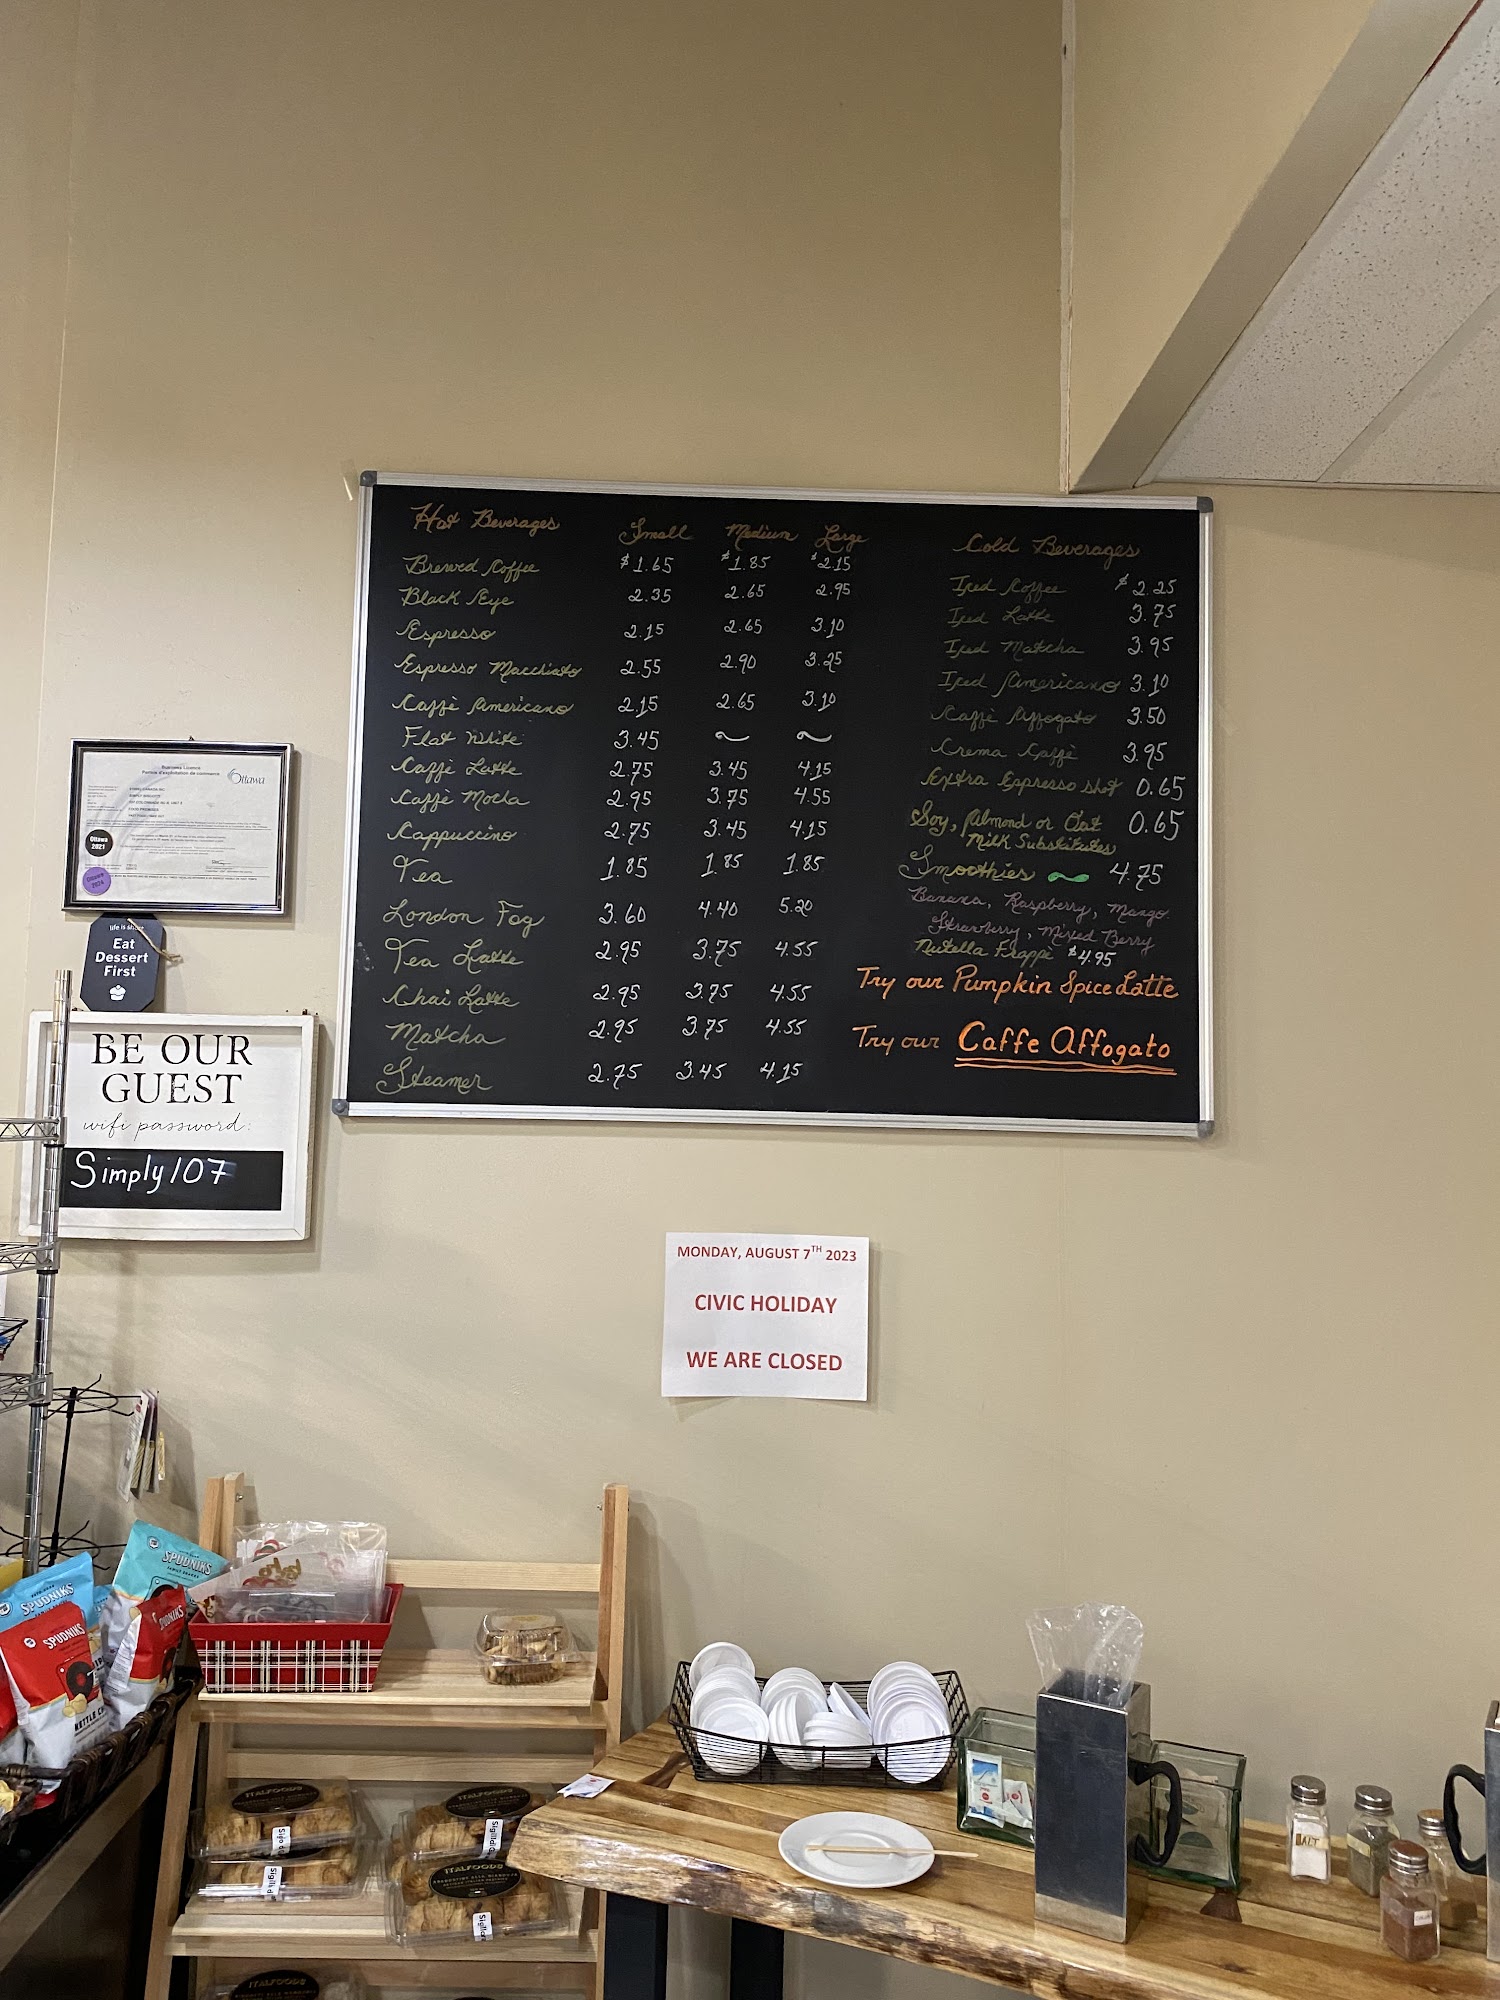 Hot Beverages Small Medium Large
Brewed Coffee $1.65 $1.85 $2.15
Black Eye 2.35 2.65 2.95
Espresso 2.15 2.65 3.10
Espresso Macchiato 2.55 2.90 3.25
Caffè Americano 2.15 2.65 3.10
Flat White 3.45 ~ ~
Caffè Latte 2.75 3.45 4.15
Caffè Mocha 2.95 3.75 4.55
Cappuccino 2.75 3.45 4.15
Tea 1.85 1.85 1.85
London Fog 3.60 4.40 5.20
Tea Latte 2.95 3.75 4.55
Chai Latte 2.95 3.75 4.55
Matcha 2.95 3.75 4.55
Steamer 2.75 3.45 4.15
Cold Beverages
Iced Coffee $2.25
Iced Latte 3.75
Iced Matcha 3.95
Iced Americano 3.10
Caffè Affogato 3.50
Crema Caffè 3.95
Extra Espresso shot 0.65
Soy, Almond or Oat 0.65
Milk Substitutes
Smoothies ~ 4.75
Banana, Raspberry, Mango
Strawberry, Mixed Berry
Nutella Frappè $4.95
Try our Pumpkin Spice Latte
Try our Caffe Affogato
Business Licence
Ottawa
Ottawa
2021
Ottawa
2024
Eat
Dessert
First
BE OUR
GUEST
wifi password:
Simply107
MONDAY, AUGUST 7TH 2023
CIVIC HOLIDAY
WE ARE CLOSED
SPUDNIKS
SPUDNIKS
SPUDNIKS
SPUDNIKS
ITALFOODS
ITALFOODS
ITALFOODS
ITALFOODS